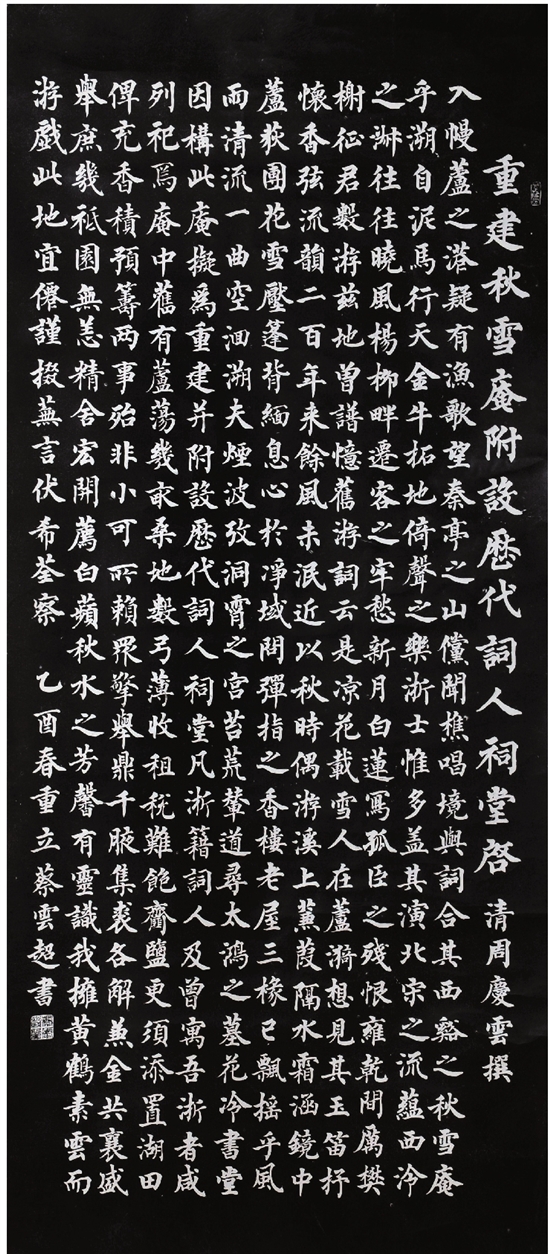 重建秋雪庵附設歷代詞人祠堂啓 清周慶雲撰
入幔蘆之港疑有漁歌望秦亭之山儻聞樵唱境與詞合其西谿之秋雪庵
乎溯自泥馬行天金牛拓地倚聲之樂浙士惟多蓋其演北宋之流蘊西泠
之渊往往曉風楊柳畔遷客之牢愁新月白蓮寫孤臣之殘恨雍乾間厲樊
榭征君數游茲地曾譜憶舊游詞云是凉花載雪人在蘆漪想見其玉笛抒
懷香弦流韻二百年来餘風未泯近以秋時偶游溪上蒹葭隔水霜涵鏡中
蘆荻團花雪壓篷背緬息心於淨域問彈指之香樓老屋三椽已飄摇乎風
雨清流一曲空洄溯夫煙波攷洞霄之宫苔荒輦道尋太鴻之墓花冷書堂
因構此庵擬爲重建并附設歷代詞人祠堂凡浙籍詞人及曾寓吾浙者咸
列祀焉庵中舊有蘆蕩幾畝桑地數弓薄收租税難飽齏鹽更須添置湖田
俾充香積預籌两事殆非小可所賴眾擎舉鼎千腋集裘各解兼金共襄盛
舉庶幾祇園無恙精舍宏開薦白蘋秋水之芳馨有靈識我擁黄鶴素雲而
游戲此地宜僊謹掇蕪言伏希荃察 乙酉春重立蔡雲超書